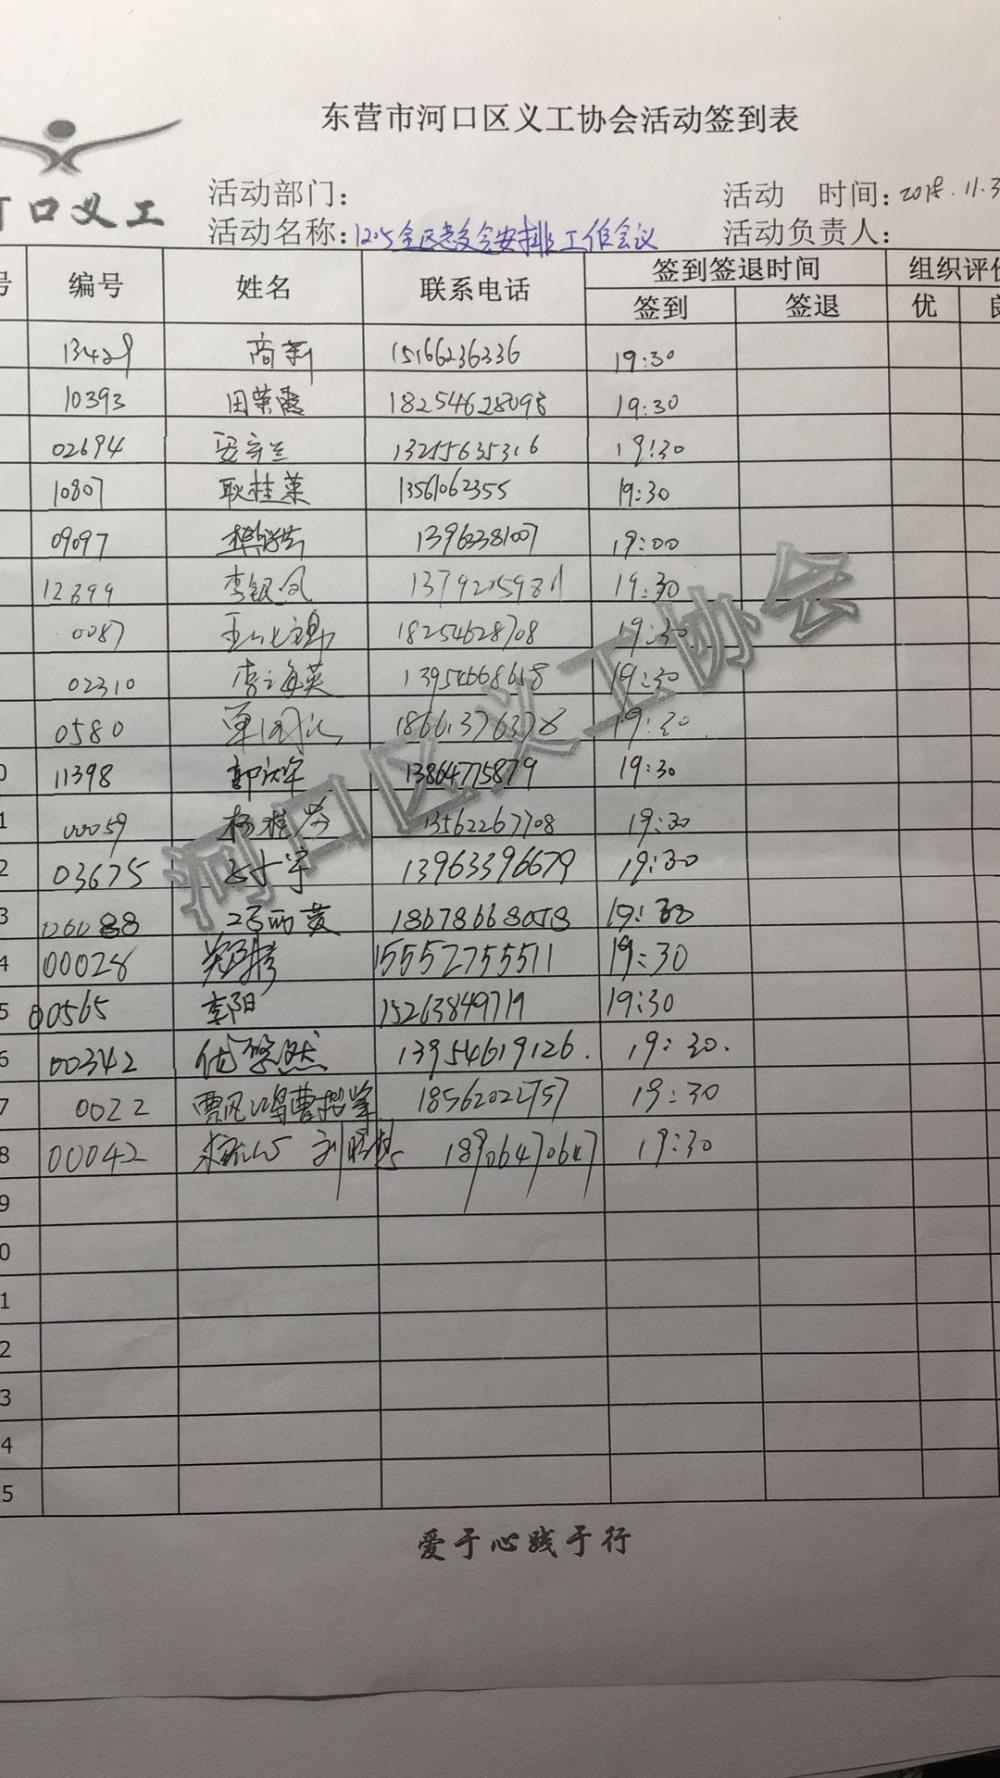 东营市河口区义工协会活动签到表
口义工
活动部门：
活动 时间：2018.11.3
活动名称：1205全区志愿会安排工作会议
活动负责人：
号 编号 姓名 联系电话 签到签退时间 组织评价
签到 签退 优 良
13429 商新 15166236336 19:30
10393 田荣霞 18254628098 19:30
02694 19:30
10807 耿桂菜 13561062355 19:30
09097 13963381007 19:00
12899 李银凤 19:30
0087 18254628708 19:30
02310 李海英 13954668658 19:30
0580 18661376378 19:30
0 11398 13864775879 19:30
1 00059 杨桂芳 13562267708 19:30
2 03675 13963396679 19:30
3 88 18678668058 19:30
4 00028 15552755511 19:30
5 00565 李阳 15263849719 19:30
6 00342 13954619126. 19:30.
7 0022 18562022757 19:30
8 00042 18906470647 19:30
9
0
1
2
3
4
5
河口区义工协会
爱于心践于行